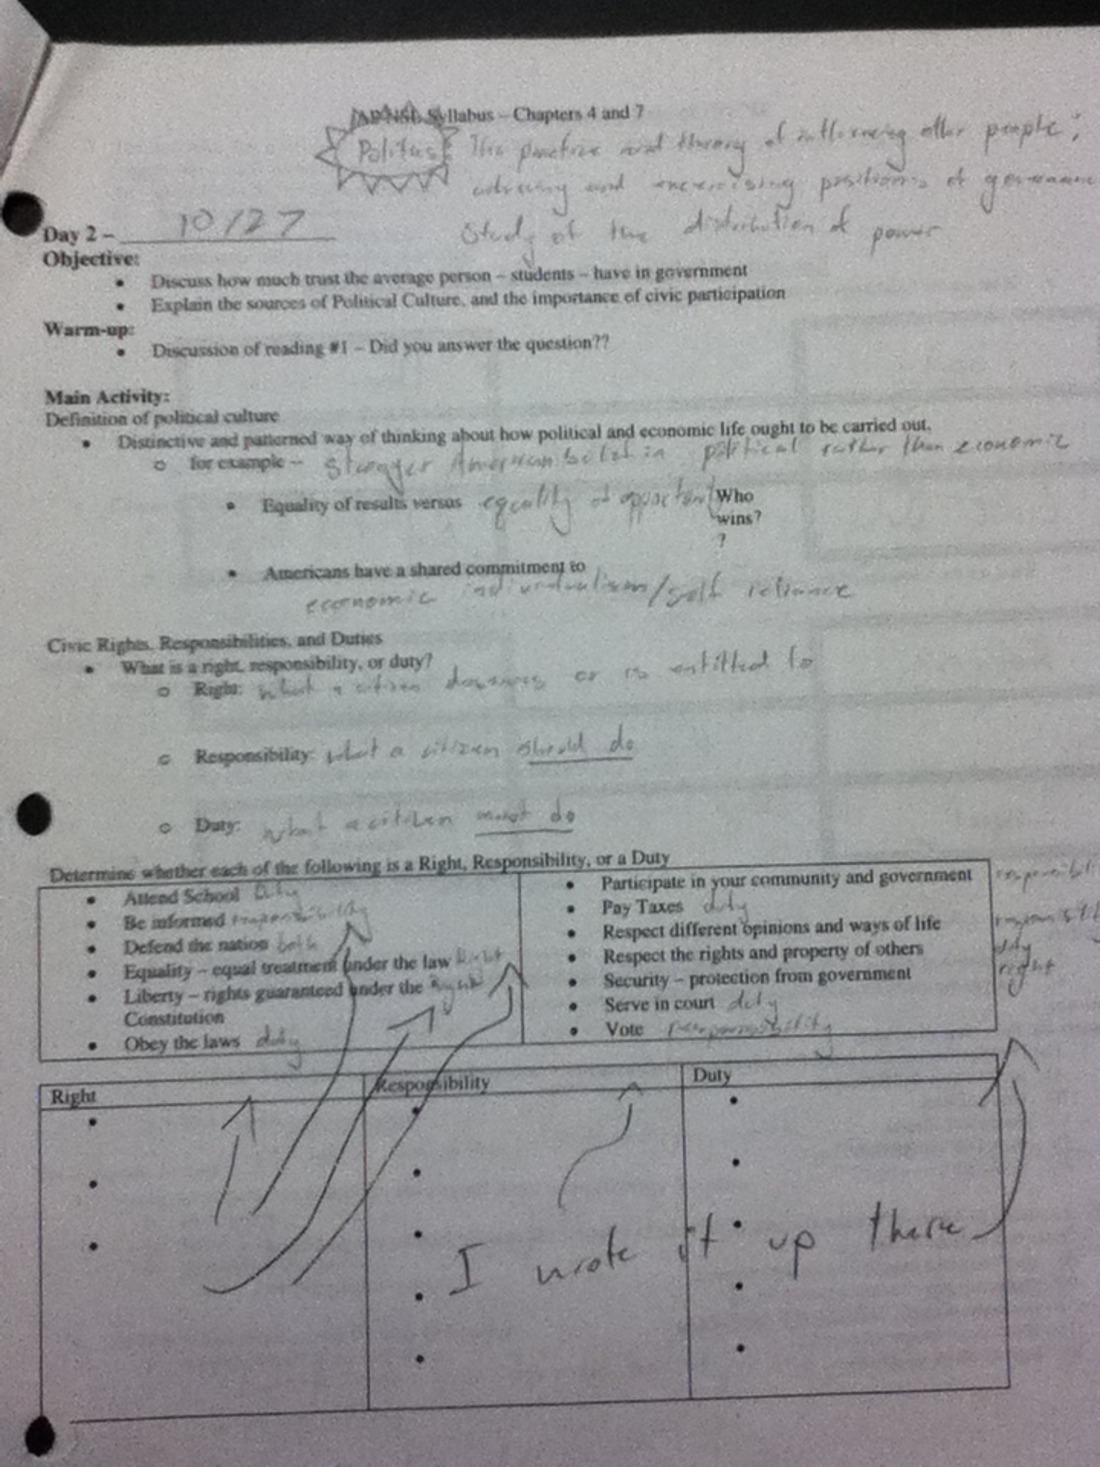 Syllabus – Chapters 4 and 7
Politics: The practice and theory of influencing other people;
and exercising positions of governance
Study of the distribution of power
Day 2 – 10/27
Objective:
• Discuss how much trust the average person – students – have in government
• Explain the sources of Political Culture, and the importance of civic participation
Warm-up:
• Discussion of reading #1 – Did you answer the question??
Main Activity:
Definition of political culture
• Distinctive and patterned way of thinking about how political and economic life ought to be carried out.
o for example – Stronger American belief in political rather than economic
• Equality of results versus equality of Who
wins?
?
• Americans have a shared commitment to
economic individualism/self reliance
Civic Rights, Responsibilities, and Duties
• What is a right, responsibility, or duty?
o Right: what a citizen or is entitled to
o Responsibility: what a citizen should do
o Duty: what a citizen must do
Determine whether each of the following is a Right, Responsibility, or a Duty
• Attend School Duty
• Be informed responsibility
• Defend the nation both
• Equality – equal treatment under the law Right
• Liberty – rights guaranteed under the Right
Constitution
• Obey the laws duty
• Participate in your community and government responsibili
• Pay Taxes duty
• Respect different opinions and ways of life
• Respect the rights and property of others duty
• Security – protection from government right
• Serve in court duty
• Vote responsibility
Right
Responsibility
Duty
I wrote it up there